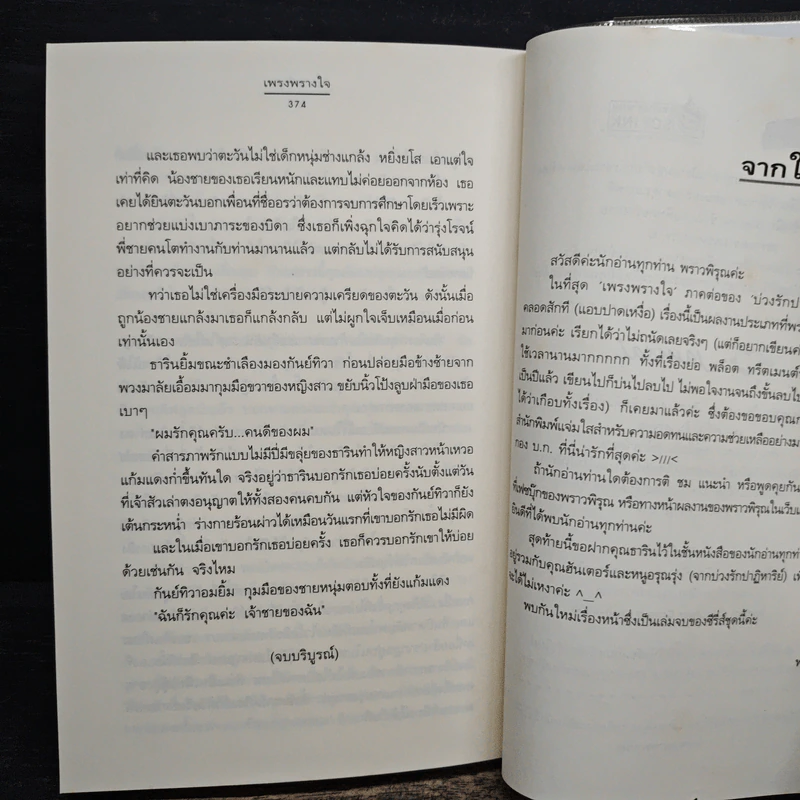 เพรงพรางใจ
374
และเธอพบว่าตะวันไม่ใช่เด็กหนุ่มช่างแกล้ง หยิ่งยโส เอาแต่ใจ
เท่าที่คิด น้องชายของเธอเรียนหนักและแทบไม่ค่อยออกจากห้อง เธอ
เคยได้ยินตะวันบอกเพื่อนที่ชื่ออรว่าต้องการจบการศึกษาโดยเร็วเพราะ
อยากช่วยแบ่งเบาภาระของบิดา ซึ่งเธอก็เพิ่งฉุกใจคิดได้ว่ารุ่งโรจน์
พี่ชายคนโตทำงานกับท่านมานานแล้ว แต่กลับไม่ได้รับการสนับสนุน
อย่างที่ควรจะเป็น
ทว่าเธอไม่ใช่เครื่องมือระบายความเครียดของตะวัน ดังนั้นเมื่อ
ถูกน้องชายแกล้งมาเธอก็แกล้งกลับ แต่ไม่ผูกใจเจ็บเหมือนเมื่อก่อน
เท่านั้นเอง
ธารินยิ้มขณะชำเลืองมองกันย์ทิวา ก่อนปล่อยมือข้างซ้ายจาก
พวงมาลัยเอื้อมมากุมมือขวาของหญิงสาว ขยับนิ้วโป้งลูบฝ่ามือของเธอ
เบาๆ
"ผมรักคุณครับ...คนดีของผม"
คำสารภาพรักแบบไม่มีปี่มีขลุ่ยของธารินทำให้หญิงสาวหน้าเหวอ
แก้มแดงก่ำขึ้นทันใด จริงอยู่ว่าธารินบอกรักเธอบ่อยครั้งนับตั้งแต่วัน
ที่เจ้าสัวเล่าตงอนุญาตให้ทั้งสองคนคบกัน แต่หัวใจของกันย์ทิวาก็ยัง
เต้นกระหน่ำ ร่างกายร้อนผ่าวได้เหมือนวันแรกที่เขาบอกรักเธอไม่มีผิด
และในเมื่อเขาบอกรักเธอบ่อยครั้ง เธอก็ควรบอกรักเขาให้บ่อย
ด้วยเช่นกัน จริงไหม
กันย์ทิวาอมยิ้ม กุมมือของชายหนุ่มตอบทั้งที่ยังแก้มแดง
"ฉันก็รักคุณค่ะ เจ้าชายของฉัน"
(จบบริบูรณ์)
จากใ
สวัสดีค่ะนักอ่านทุกท่าน พราวพิรุณค่ะ
ในที่สุด 'เพรงพรางใจ' ภาคต่อของ 'บ่วงรักป
คลอดสักที (แอบปาดเหงื่อ) เรื่องนี้เป็นผลงานประเภทที่พร
มาก่อนค่ะ เรียกได้ว่าไม่ถนัดเลยจริงๆ (แต่ก็อยากเขียนค่
ใช้เวลานานมากกกกก ทั้งที่เรื่องย่อ พล็อต ทรีตเมนต์
เป็นปีแล้ว เขียนไปก็บ่นไปลบไป ไม่พอใจงานจนถึงขั้นลบไป
ได้ว่าเกือบทั้งเรื่อง) ก็เคยมาแล้วค่ะ ซึ่งต้องขอขอบคุณก
สำนักพิมพ์แจ่มใสสำหรับความอดทนและความช่วยเหลืออย่างม
กอง บ.ก. ที่นี่น่ารักที่สุดค่ะ >///<
ถ้านักอ่านท่านใดต้องการติ ชม แนะนำ หรือพูดคุยกัน
ที่เฟซบุ๊กของพราวพิรุณ หรือทางหน้าผลงานของพราวพิรุณในเว็บ
ยินดีที่ได้พบนักอ่านทุกท่านค่ะ
สุดท้ายนี้ขอฝากคุณธารินไว้ในชั้นหนังสือของนักอ่านทุกท่
อยู่รวมกับคุณฮันเตอร์และหนูอรุณรุ่ง (จากบ่วงรักปาฏิหาริย์) เพ
จะได้ไม่เหงาค่ะ ^__^
พบกันใหม่เรื่องหน้าซึ่งเป็นเล่มจบของซีรี่ส์ชุดนี้ค่ะ